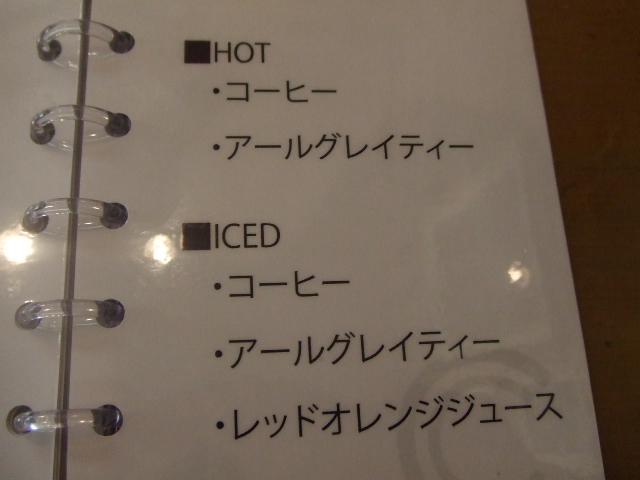 ■HOT
・コーヒー
・アールグレイティー
■ICED
・コーヒー
・アールグレイティー
・レッドオレンジジュース